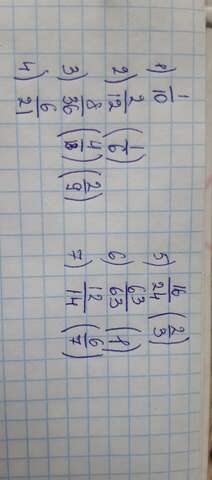 1) 1/10
2) 2/12 (1/6)
3) 8/36 (4/18) (2/9)
4) 6/21
5) 16/24 (2/3)
6) 63/63 (1)
7) 12/14 (6/7)